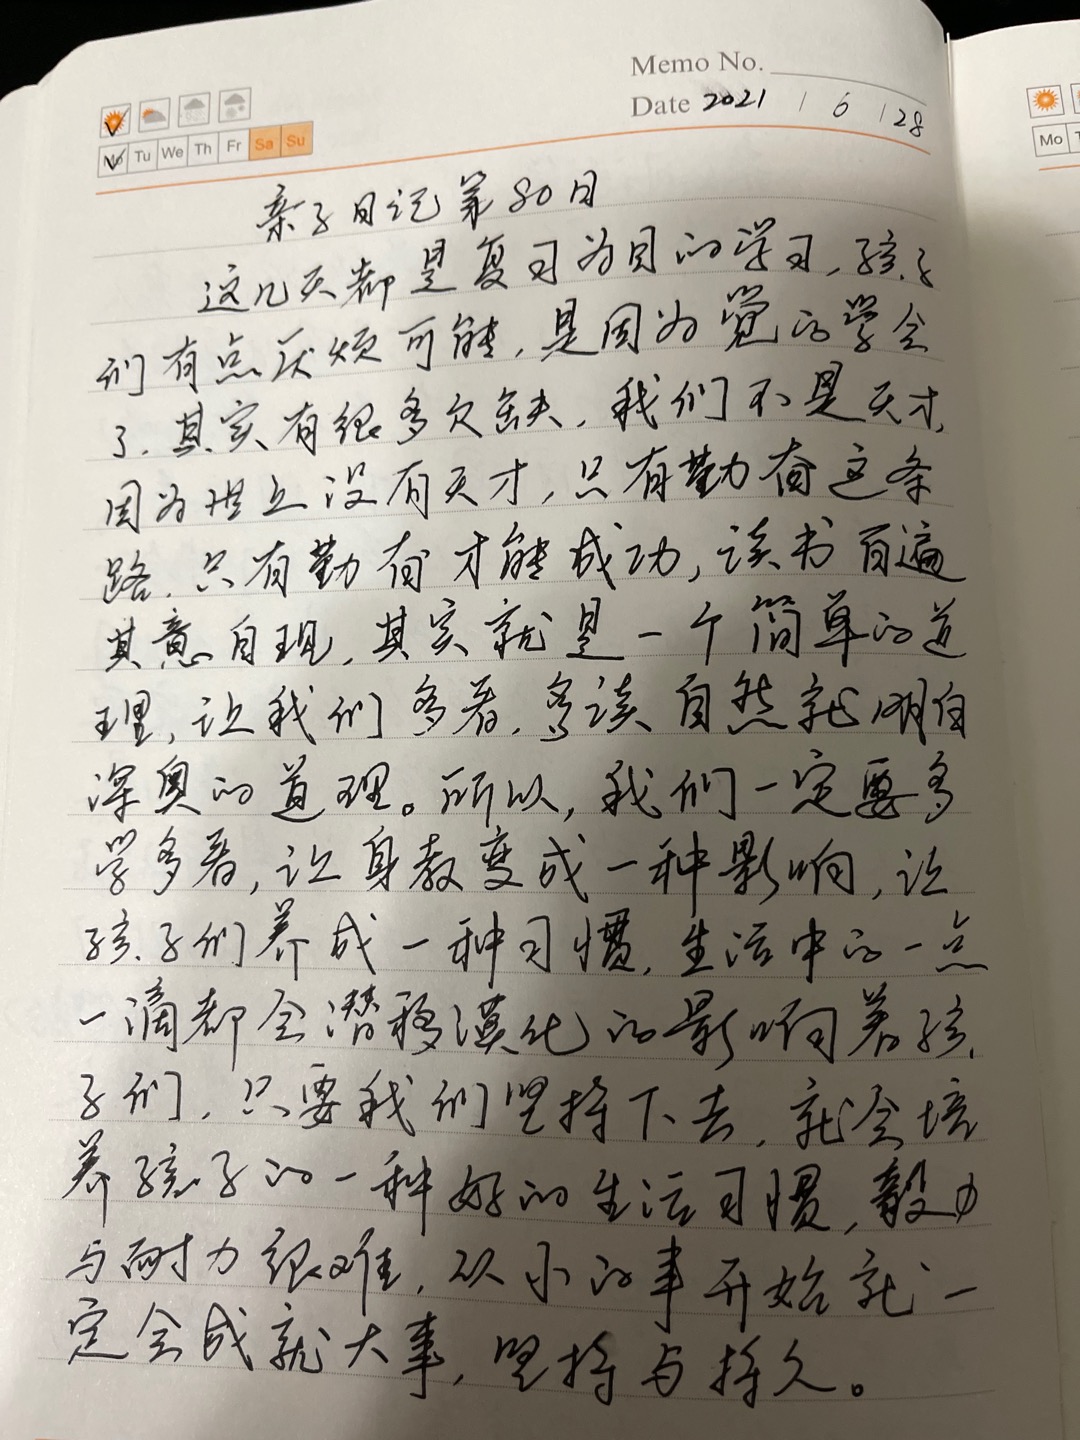 Memo No.
Date 2021 / 6 / 28
Mo Tu We Th Fr Sa Su
Mo
亲子日记第80日
这几天都是复习为目的学习,孩子
们有点厌烦可能,是因为觉的学会
了.其实有很多欠缺,我们不是天才,
因为世上没有天才,只有勤奋这条
路.只有勤奋才能成功,读书百遍
其意自现,其实就是一个简单的道
理,让我们多看.多读自然就明白
深奥的道理。所以,我们一定要多
学多看,让身教变成一种影响,让
孩子们养成一种习惯,生活中的一点
一滴都会潜移漠化的影响着孩
子们,只要我们坚持下去,就会培
养孩子的一种好的生活习惯,毅力
与耐力很难,从小的事开始就一
定会成就大事,坚持与持久。